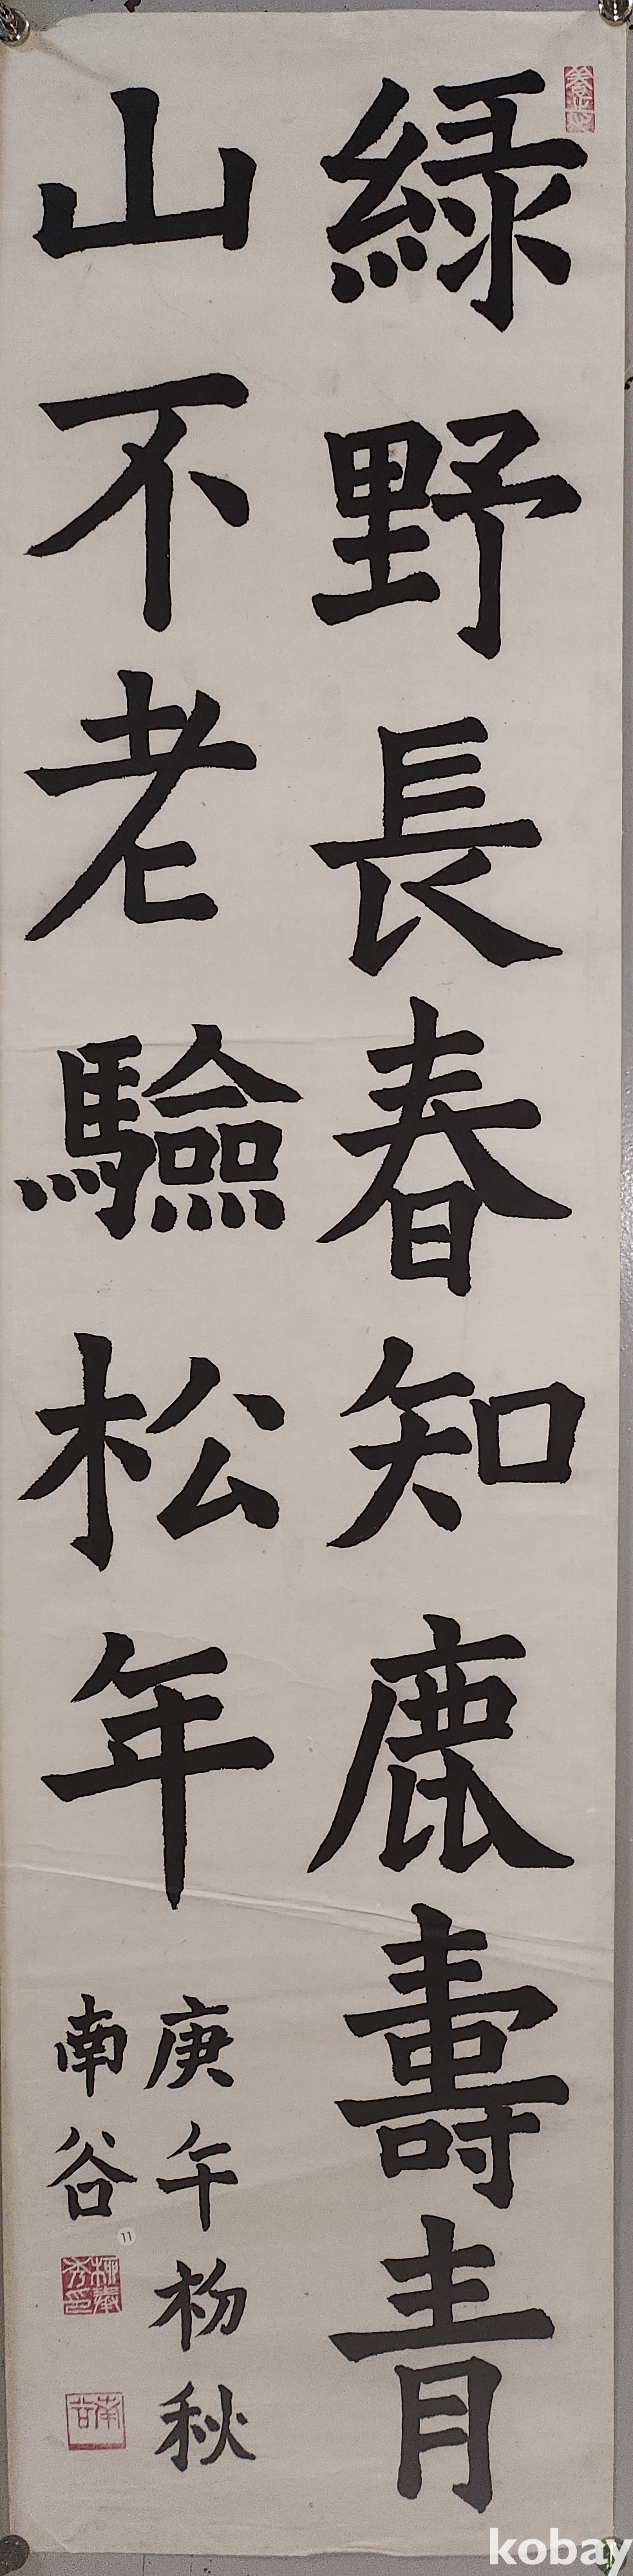 綠野長春知鹿壽青
山不老驗松年
庚午杒秋
南谷
11
南谷
kobay